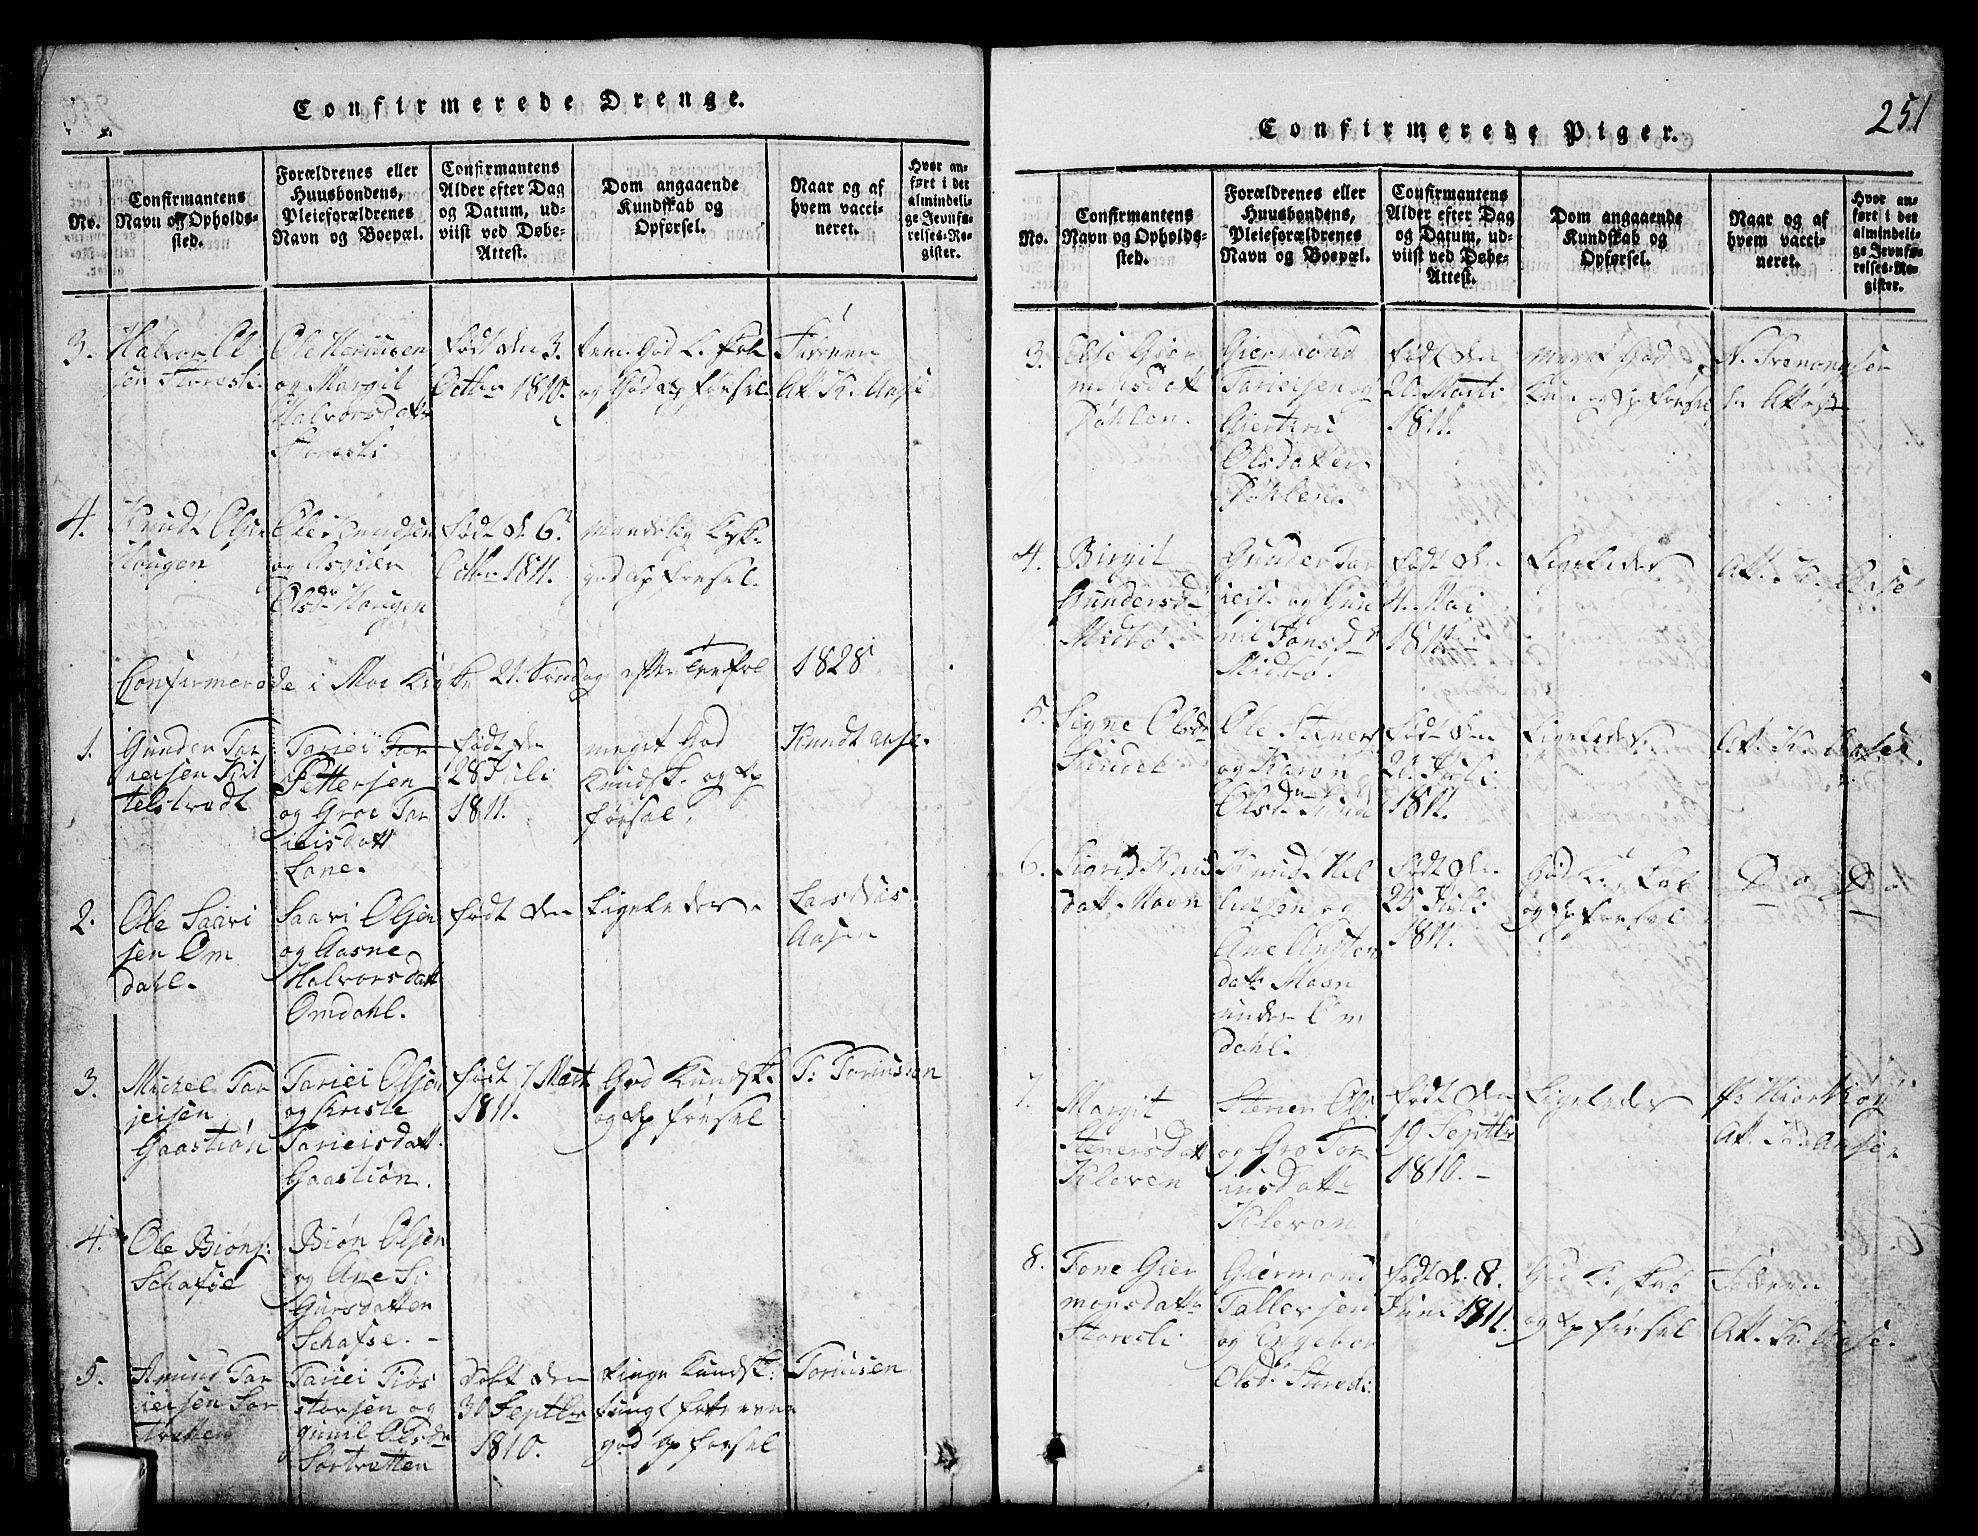 Confirmerede Drenge.
No.
Confirmantens
Navn og Opholds-
sted.
Forældrenes eller
Huusbondens,
Pleieforældrenes
Navn og Boepæl.
Confirmantens
Alder efter Dag
og Datum, ud-
viist ved Døbe-
Attest.
Dom angaaende
Kundskab og
Opførsel.
Naar og af
hvem vacci-
neret.
Hvor an-
ført i det
almindeli-
ge Jevnfø-
relses-Re-
gister.
3.
Halvor Ol
sen Storesli.
og Margit
Halvorsdatt
Storesli
født den 3.
Octbr 1810.
og God opførsel.
Att K. Aase
4.
Knudt Olsen
Hougen
Ole Knudsen
Olsdr Hougen
født d 6t
Octbr 1811.
god opførsel.
Confirmerede i Moe Kirke 21. Søndag efter Tref. 1828
1.
Gunder Tar
jeisen Kit
telstvedt
Tariei
Pettersen
og Groe Tar
ieisdatt
Lane.
født den
28 Juli
1811.
meget God
Kundsk. og Op
førsel.
Knudt Aase.
2.
Ole Saavi
sen Om
dahl.
Saavi Olsen
og Aasne
Halvorsdatt
Omdahl.
født den
Ligeledes
3.
Michel Tar
jeisen
Gaastiøn
Tariei Olsen
og Christe
Tarieisdatt.
Gaastiøn.
født 7 Martz
1811.
God Kundsk.
og Opførsel
T. Toriusen
4.
Ole Biøns.
Schafse
Biøn Olsen
og Ane Si
gursdatter
Schafse.
5.
Amund Tar
ieisen Sor
tvetten
og
gunil Olsdr
Sortvetten
Døbt den
30 Septbr
1810.
ringe Kundsk.
god Opførsel
Toriusen
Confirmerede Piger.
251
No.
Confirmantens
Navn og Opholds-
sted.
Forældrenes eller
Huusbondens,
Pleieforældrenes
Navn og Boepæl.
Confirmantens
Alder efter Dag
og Datum, ud-
viist ved Døbe-
Attest.
Dom angaaende
Kundskab og
Opførsel.
Naar og af
hvem vacci-
neret.
Hvor an-
ført i det
almindeli-
ge Jevnfø-
relses-Re-
gister.
3.
Else Gier
monsdatt
Døhlen.
Giermond
Tarieisen og
Giertru
Olsdatter
Døhlen.
født den
20 Marti
1811.
meget God
Kun. og Opførsel
4.
Birgit
Gundersdr
Midbø.
Gunder Tar
ieis. og Gun
nil Jonsdr
Midbø.
født den
4. Mai
1811.
Ligeledes
Att. K. Aase
5.
Signe Olsdr
Sundet
Ole Steners.
og Karen
Olsdr Sund
født den
Juli
1811.
Ligeledes.
Att. K. Aase.
6.
Sigrid Knus
datt Moen
Knud Kel
og
datt Moen
under Om
dahl.
født den
25 Juli
1811.
God
og Opførsel
Do Do
7.
Margit
Stenersdatt
Kleven
Stener Ols.
og Gro Tor
iusdatt
Kleven
født den
19 Septbr
1810.
Ligeledes
Att. K. Aase.
8.
Tone Gier
monsdatt
Storesli
Giermond
Tallevsen
og Engebor
Olsd. Storesli
født d. 8.
Juni 1811.
God K. skab
og Opførsel
Att. K. Aase.